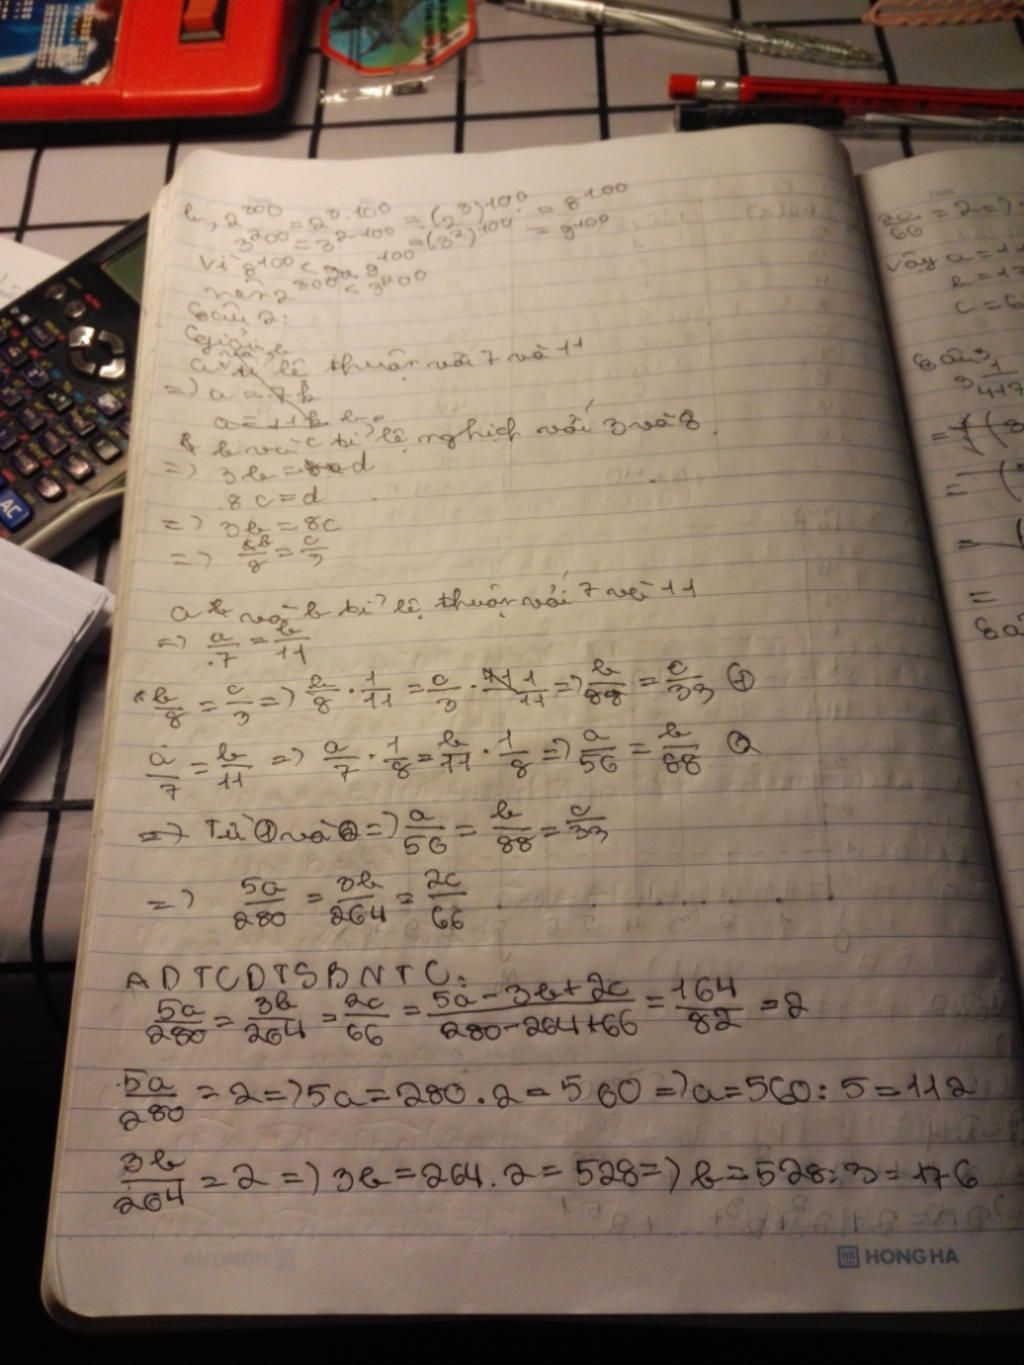 b, 2^300 = 2^3.100 = (2^3)^100 = 8^100
3^200 = 3^2.100 = (3^2)^100 = 9^100
Vì 8^100 < 9^100
nên 2^300 < 3^200
Câu 2:
Giải:
a tỉ lệ thuận với 7 và 11
=) a = 7k
a = 11k
b và c tỉ lệ nghịch với 3 và 8.
=) 3b = d
8c = d
=) 3b = 8c
=) b/8 = c/3
a và b tỉ lệ thuận với 7 và 11
=) a/7 = b/11
b/8 = c/3 =) b/8 . 1/11 = c/3 . 1/11 =) b/88 = c/33 ①
a/7 = b/11 =) a/7 . 1/8 = b/11 . 1/8 =) a/56 = b/88 ②
=) Từ ① và ② =) a/56 = b/88 = c/33
=) 5a/280 = 3b/264 = 2c/66
ADTCDTSBNTC:
5a/280 = 3b/264 = 2c/66 = 5a-3b+2c/280-264+66 = 164/82 = 2
5a/280 = 2 =) 5a = 280.2 = 560 =) a = 560:5 = 112
3b/264 = 2 =) 3b = 264.2 = 528 =) b = 528:3 = 176
HONG HA
2c/66 = 2 =)
Vậy a = 11
b = 17
c = 6
Câu 3
AC